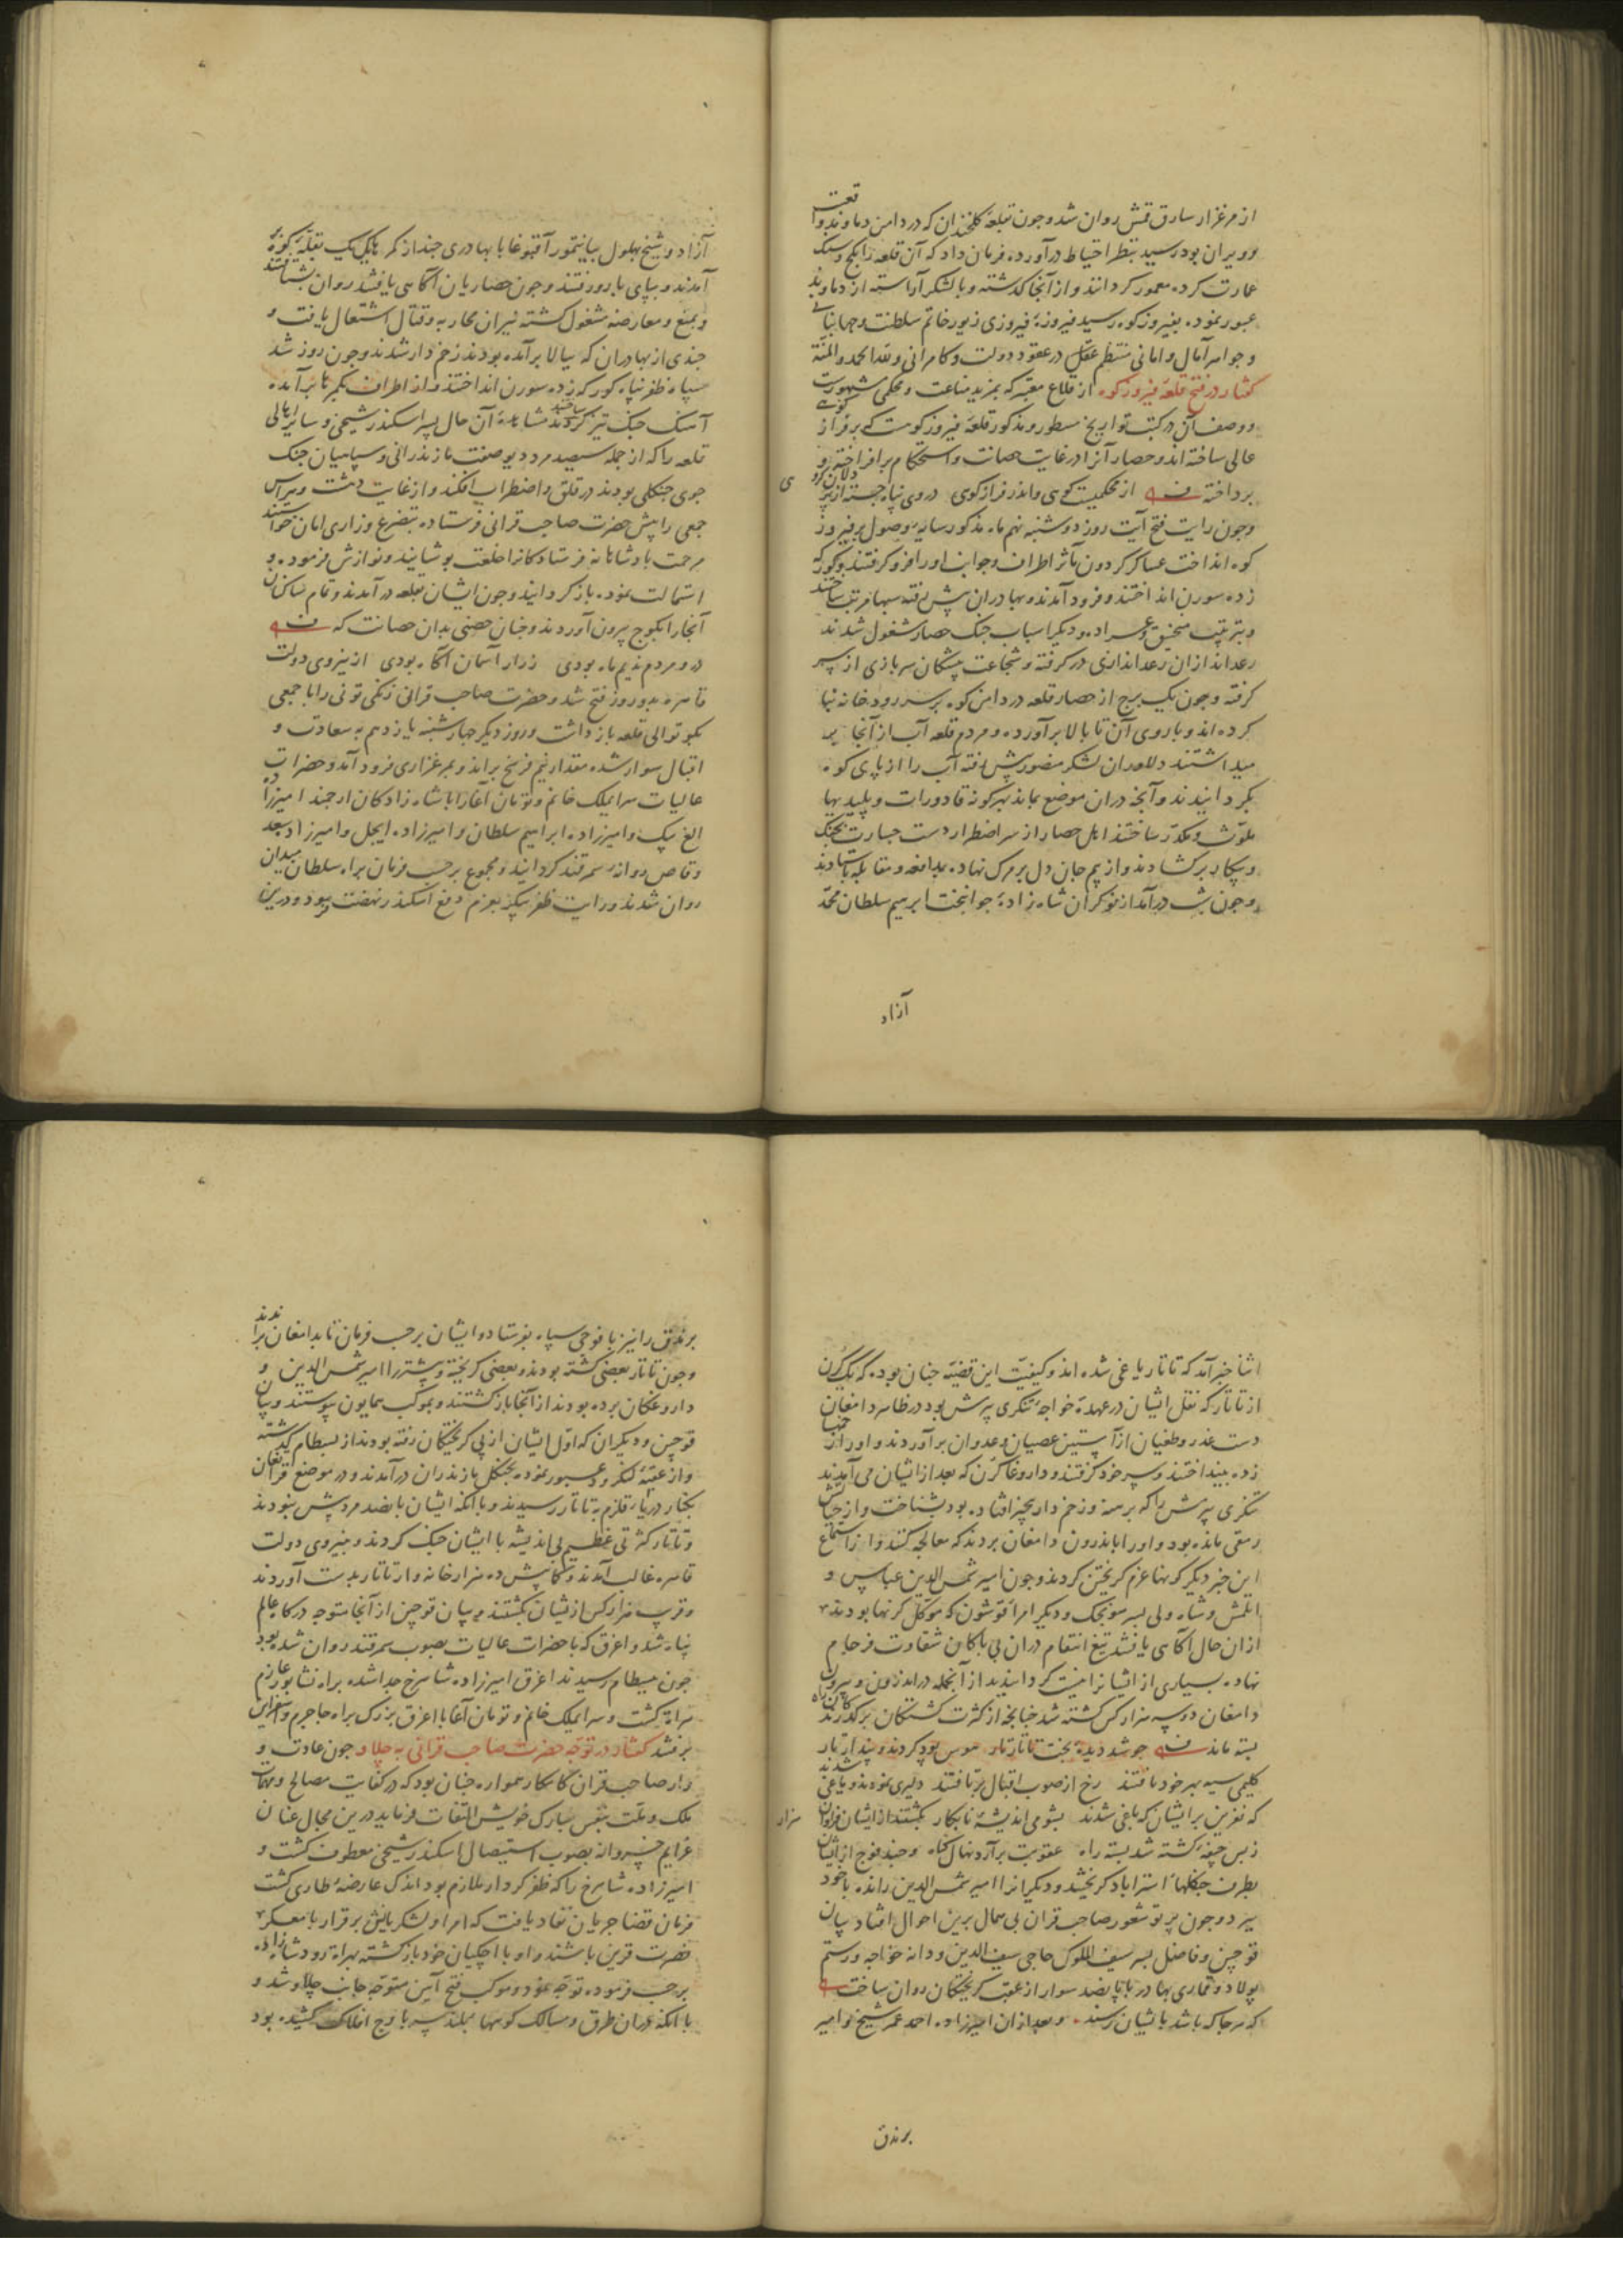 از مرغزار سارق قمش روان شد و جون بقلعهٔ کلخندان که در دامن دماوند واقعست
و ویران بود رسید بنظر احتیاط درآورده فرمان داد که آن قلعه را بکج و سنک
عمارت کرده معمور کردانند و از آنجا کذشته و با لشکر آراسته از دماوند
عبور نموده بفیروزکوه رسید فیروزهٔ فیروزی زیور خاتم سلطنت و جهانبانی
و جواهر آمال و امانی منتظم عقل در عقود دولت و کامرانی و لله الحمد و المنّة
کفتار در فتح قلعهٔ فیروزکوه از قلاع معتبر که بمزید مناعت و محکمی مشهورست
و وصف آن در کتب تواریخ مسطور و مذکور قلعهٔ فیروزکوهست که بر فراز کوهی
عالی ساخته اند و حصار آنرا در غایت حصانت و استحکام برافراخته و
برداخته از محکمیست کوهی واندر فراز کوی در وی پناه جسته از
ی
وجون رایت فتح آیت روز دوشنبه نهم ماه مذکور سایهٔ وصول بر فیروز
کوه انداخت عساکر کردون مآثر اطراف و جوانب او را فرو کرفتند و کورکه
زده سورن انداختند و فرود آمدند و بهادران پیش رفته سیبها مرتب ساختند
و بترتیب منجنیق و عراده و دیکر اسباب جنک حصار مشغول شدند
رعداندازان رعداندازی درکرفته و شجاعت پیشکان سربازی از سر
کرفته و جون یک برج از حصار قلعه در دامن کوه بر سر رودخانه بنا
کرده اند و باروی آن تا بالا برآورده و مردم قلعه آب از آنجا بر
میداشتند دلاوران لشکر منصور پیش رفته آب را از پای کوه
بکردانیدند و آنچه دران موضع بماند بهرکونه قاذورات و پلیدیها
ملوّث و مکدّر ساختند اهل حصار از سر اضطرار دست جسارت بجنک
و پیکار برکشادند و از بیم جان دل بر مرک نهاده بمدافعه و مقابله بایستادند
و جون شب درآمد از نوکران شاه زادهٔ جوانبخت ابرهیم سلطان محمّد
آزاد
آزاد و شیخ بهلول بیانتمور آقبوغا با بهادری جند از کمر یکیک بقلّهٔ کوه بر
آمدند و بپای بارو رفتند و جون حصاریان آکاهی یافتند روان بشتافتند
و بمنع و معارضه مشغول کشته نیران محاربه و قتال اشتعال یافت و
جندی از بهادران که ببالا برآمده بودند زخم دار شدند و جون روز شد
سپاه ظفر پناه کورکه زده سورن انداختند و از اطراف بکمرها برآمده
آهنک جنک تیز کردند مشاهدهٔ آن حال پسر اسکندر شیخی و سایر اهالی
قلعه را که از جمله سیصد مرد دیو صفت مازندرانی و سپاهیان جنک
جوی جنکلی بودند در قلق و اضطراب افکند و از غایت دهشت و هراس
جمعی را پیش حضرت صاحب قرانی فرستاده بتضرع و زاری امان خواستند
مرحمت بادشاهانه فرستادکانرا خلعت پوشانید و نوازش فرموده و
استمالت نموده بازکردانید و جون ایشان بقلعه درآمدند و تمام ساکنان
آنجا را بکوج بیرون آوردند و جنان حصنی بدان حصانت که
درو مردم ندیم ماه بودی ز راز آسمان آکاه بودی از نیروی دولت
قاهره بدو روز فتح شد و حضرت صاحب قرانی زنکی تونی را با جمعی
بکوتوالی قلعه بازداشت و روز دیکر جهارشنبه یازدهم به سعادت و
اقبال سوار شده مقدار نیم فرسخ براند و بمرغزاری فرود آمد و حضرات
عالیات سرایملک خانم و تومان آغا را با شاه زادکان ارجمند امیرزاده
الغ بیک و امیرزاده ابراهیم سلطان و امیرزاده ایجل و امیرزاده سعد
وقاص روانه سمرقند کردانید و مجموع برحسب فرمان براه سلطان میدان
روان شدند و رایت ظفر پیکر بعزم دفع اسکندر نهضت فرمود و درین
اثنا خبر آمد که تاتار یاغی شده اند و کیفیّت این قضیّه جنان بود که یک کرن
از تاتار که نقل ایشان در عهدهٔ خواجه تنکری پرمش بود در ظاهر دامغان
دست غدر و طغیان از آستین عصیان و عدوان برآوردند و او را زخمها
زده بینداختند و سر خود کرفتند و داروغا کرن که بعد از ایشان می آمدند
تنکری پرمش را که برهنه و زخم دار بجبر افتاده بود بشناخت و از حیاتش
رمقی مانده بود و او را باندرون دامغان بردند که معالجه کنند و از استماع
این خبر دیکر کرنها عزم کریختن کردند و جون امیر شمس الدین عباس و
اتلمش و شاه ولی پسر سونجک و دیکر امراء قوشون که موکّل کرنها بودند
از ان حال آکاهی یافتند تیغ انتقام دران بی باکان شقاوت فرجام
نهاده بسیاری از ایشانرا نیست کردانیدند از آنجمله در اندرون و بیرون
دامغان دو سه هزار کس کشته شد جنانجه از کثرت کشتکان بر کذرندکان راه
بسته ماند جو شد دیدهٔ بخت تاتار تار هوس بود کردند و پندار تار
کلیمی سیه بهر خود بافتند رخ از صوب اقبال برتافتند دلیری نمودند و یاغی شدند
که نفرین بر ایشان که باغی شدند بشومی اندیشهٔ نابکار بکشتند از ایشان فزون از هزار
ز بس جیفهٔ کشته شد بسته راه عقوبت برآرد نهال کناه و جند فوج از ایشان
بطرف جنکلهاء استراباد کریختند و دیکرانرا امیر شمس الدین رانده با خود
ببرد و جون پرتو شعور صاحب قران بی همال برین احوال افتاد بیان
قوجین و فاضل پسر سیف الملوک حاجی سیف الدین و دانه خواجه و رستم
پولاد و قماری بهادر با پانصد سوار از عقب کریختکان روان ساخت
که هر جا که باشد بایشان رسند و بعد از ان امیرزاده احمد عمر شیخ و امیر
برندق
برندق را نیز با فوجی سپاه بفرستاد و ایشان برحسب فرمان تا بدامغان براندند
و جون تاتار بعضی کشته بودند و بعضی کریخته و بیشتر را امیر شمس الدین و
داروغکان برده بودند از آنجا بازکشتند و بموکب همایون پیوستند و بیان
قوجین و دیکران که اوّل ایشان از پی کریختکان رفته بودند از بسطام کذشته
و از عقبهٔ لنکرود عبور نموده بجنکل مازندران درآمدند و در موضع قراتغان
بکنار دریاء قلزم بتاتار رسیدند و با آنکه ایشان پانصد مرد بیش نبودند
و تاتار کثرتی عظیم بی اندیشه با ایشان جنک کردند و بنیروی دولت
قاهره غالب آمدند و کمابیش ده هزار خانه وار تاتار بدست آوردند
و قریب هزار کس از ایشان بکشتند و بیان قوجین از آنجا متوجه درکاه عالم
پناه شد و اغرق که با حضرات عالیات بصوب سمرقند روان شده بود
جون ببسطام رسیدند اغرق امیرزاده شاهرخ جدا شده براه نشابور عازم
هراة کشت و سرایملک خانم و تومان آغا با اغرق بزرک براه جاجرم و اسفراین
برفتند کفتار در توجّه حضرت صاحب قرانی به جلاو جون عادت و
داب صاحب قران کامکار همواره جنان بود که در کفایت مصالح و مهمّات
ملک و ملّت بنفس مبارک خویش التفات فرماید درین مجال عنان
عزایم خسروانه بصوب استیصال اسکندر شیخی معطوف کشت و
امیرزاده شاهرخ را که ظفرکردار ملازم بود اندک عارضهٔ طاری کشت
فرمان قضا جریان نفاذ یافت که امرا و لشکریانش برقرار با معسکر
نصرت قرین باشند و او با اجکیان خود بازکشته بهراة رود شاهزاده
برحسب فرموده توجّه نمود و موکب فتح آیین متوجّه جانب جلاو شد و
با آنکه دران طرق و مسالک کوهها بلند سر باوج افلاک کشیده بود